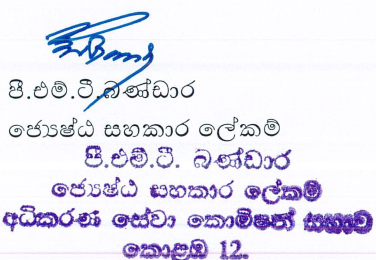 පී.එම්.ටී.බණ්ඩාර
ජ්‍යෙෂ්ඨ සහකාර ලේකම්
පී.එම්.ටී. බණ්ඩාර
ජ්‍යෙෂ්ඨ සහකාර ලේකම්
අධිකරණ සේවා කොමිෂන් සභාව
කොළඹ 12.